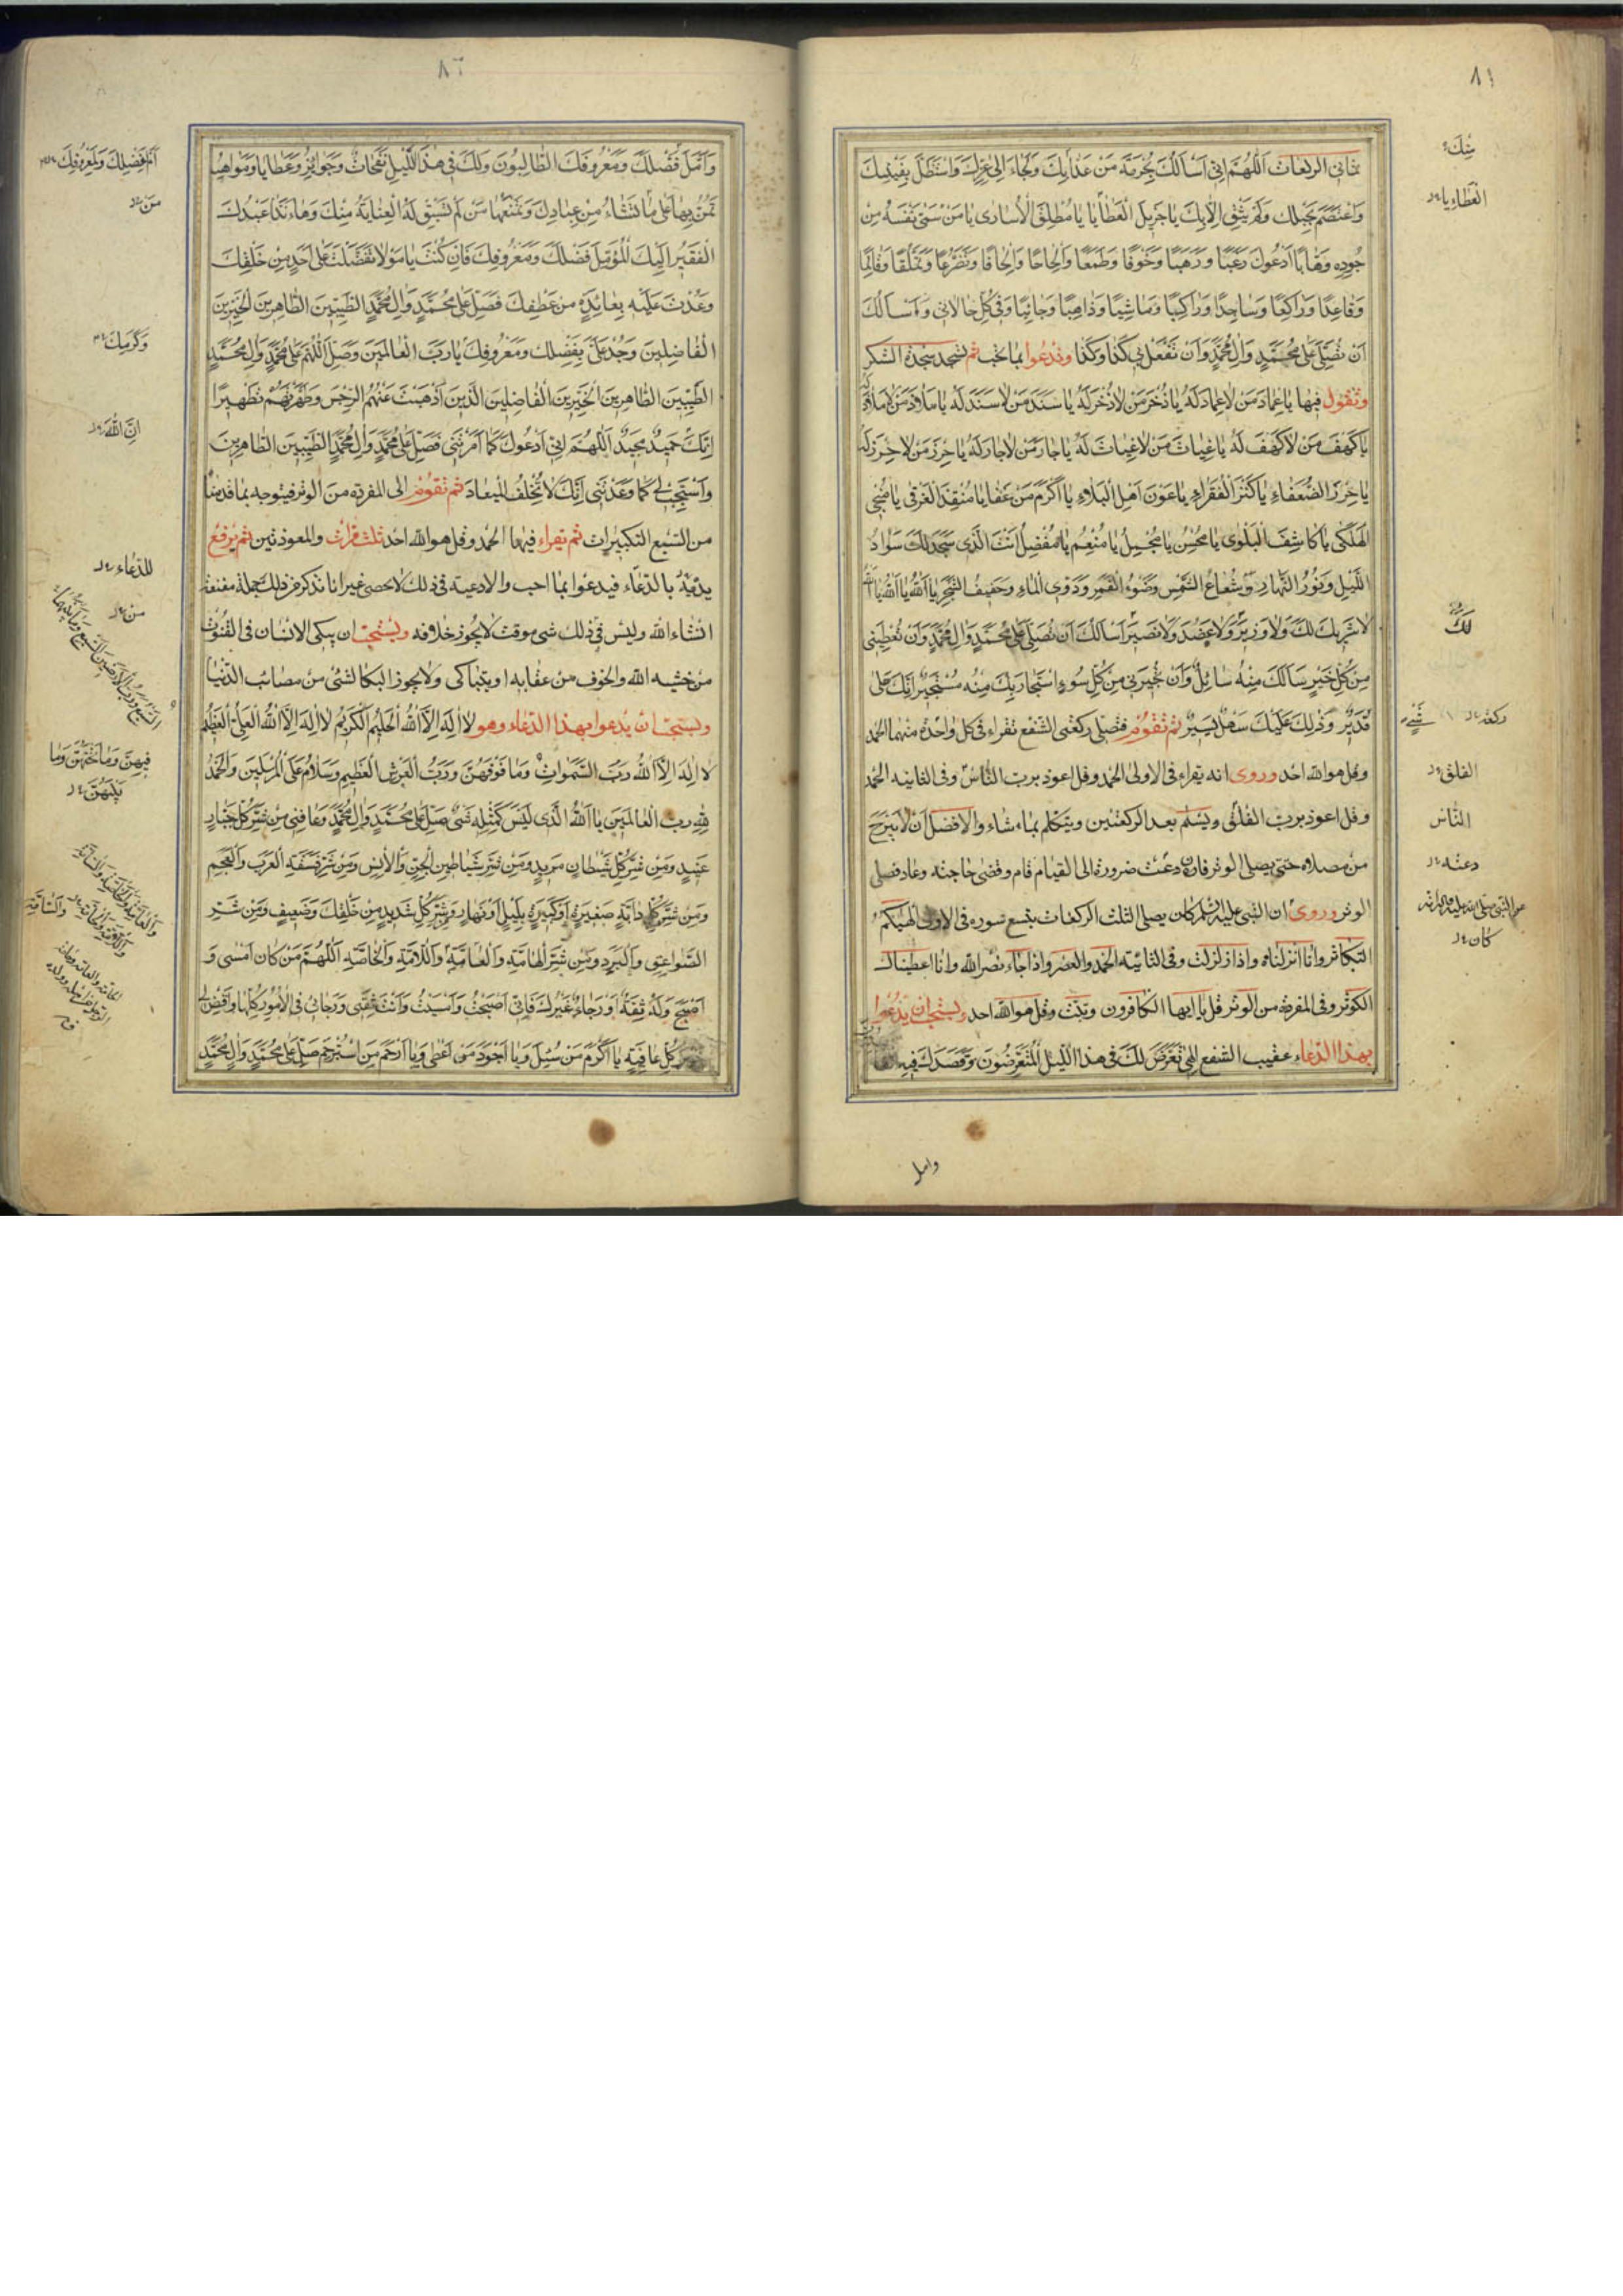 ٨١
ثماني الركعات اَللّهُمَّ اِنّي اَسْاَلُكَ بِحُرْمَةِ مَنْ عَاذَ بِكَ وَلَجَاَ اِلى عِزِّكَ وَاسْتَظَلَّ بِفَيْئِكَ
وَاعْتَصَمَ بِحَبْلِكَ وَلَمْ يَثِقْ اِلاّ بِكَ يا جَزيلَ الْعَطايا يا مُطْلِقَ الْاُسارى يا مَنْ سَمّى نَفْسَهُ مِنْ
جُودِهِ وَهّاباً اَدْعُوكَ رَغَباً وَرَهَباً وَخَوْفاً وَطَمَعاً وَاِلْحاحاً وَاِلْحافاً وَتَضَرُّعاً وَتَمَلُّقاً وَقائِماً
وَقاعِداً وَراكِعاً وَساجِداً وَراكِباً وَماشِياً وَذاهِباً وَجائِياً وَفي كُلِّ حالاتي وَاَسْاَلُكَ
اَنْ تُصَلِّيَ عَلى مُحَمَّدٍ وَآلِ مُحَمَّدٍ وَاَنْ تَفْعَلَ بي كَذا وَكَذا وتدعوا بما تحب ثم تسجد سجدة الشكر
وتقول فيها يا عِمادَ مَنْ لا عِمادَ لَهُ يا ذُخْرَ مَنْ لا ذُخْرَ لَهُ يا سَنَدَ مَنْ لا سَنَدَ لَهُ يا مَلاذَ مَنْ لا مَلاذَ لَهُ
يا كَهْفَ مَنْ لا كَهْفَ لَهُ يا غِياثَ مَنْ لا غِياثَ لَهُ يا جارَ مَنْ لا جارَ لَهُ يا حِرْزَ مَنْ لا حِرْزَ لَهُ
يا حِرْزَ الضُّعَفاءِ يا كَنْزَ الْفُقَراءِ يا عَوْنَ اَهْلِ الْبَلاءِ يا اَكْرَمَ مَنْ عَفا يا مُنْقِذَ الْغَرْقى يا مُنْجِيَ
الْهَلْكى يا كاشِفَ الْبَلْوى يا مُحْسِنُ يا مُجْمِلُ يا مُنْعِمُ يا مُفْضِلُ اَنْتَ الَّذي سَجَدَ لَكَ سَوادُ
اللَّيْلِ وَنُورُ النَّهارِ وَشُعاعُ الشَّمْسِ وَضَوْءُ الْقَمَرِ وَدَوِيُّ الْماءِ وَحَفيفُ الشَّجَرِ يا اَللّهُ يا اَللّهُ يا اَللّهُ
لا شَريكَ لَكَ وَلا وَزيرَ وَلا عَضُدَ وَلا نَصيرَ اَسْاَلُكَ اَنْ تُصَلِّيَ عَلى مُحَمَّدٍ وَآلِ مُحَمَّدٍ وَاَنْ تُعْطِيَني
مِنْ كُلِّ خَيْرٍ سَاَلَكَ مِنْهُ سائِلٌ وَاَنْ تُجيرَني مِنْ كُلِّ سُوءٍ اسْتَجارَ بِكَ مِنْهُ مُسْتَجيرٌ اِنَّكَ عَلى
قَديرٌ وَذلِكَ عَلَيْكَ سَهْلٌ يَسيرٌ ثم تقوم فتصلي ركعتى الشفع تقراء في كل واحدة منهما الحمد
وقل هو الله احد وروى انه يقراء في الاولى الحمد وقل اعوذ برب الناس وفي الثانيه الحمد
وقل اعوذ برب الفلق ويسلم بعد الركعتين ويتكلم بماء شاء والافضل ان لا يبرح
من مصلاه حتى يصلى الوتر فان دعت ضرورة الى القيام قام وقضى حاجته وعاد فصلى
الوتر وروى ان النبي عليه السلم كان يصلى الثلث الركعات بتسع سورة في الاولى الهيكم
التكاثر وانا انزلناه واذا زلزلت وفي الثانية الحمد والعصر واذا جاء نصر الله وانا اعطيناك
الكوثر وفي المفردة من الوتر قل يا ايها الكافرون وتبت وقل هو الله احد ويستحب ان يدعوا
بهذا الدعاء عقيب الشفع اِلهي تَعَرَّضَ لَكَ في هذَا اللَّيْلِ الْمُتَعَرِّضُونَ وَقَصَدَكَ فيهِ
وامل
مِنْكَ
الْعَطاءِ يا
لَكَ
ركعة
شَيْءٍ
الفلق
النّاس
دعته
كان
٨٢
وَاَمَّلَ فَضْلَكَ وَمَعْرُوفَكَ الطّالِبُونَ وَلَكَ في هذَا اللَّيْلِ نَفَحاتٌ وَجَوائِزُ وَعَطايا وَمَواهِبُ
تَمُنُّ بِها عَلى ما تَشاءُ مِنْ عِبادِكَ وَتَمْنَعُها مَنْ لَمْ تَسْبِقْ لَهُ الْعِنايَةُ مِنْكَ وَها اَنَا ذا عَبْدُكَ
الْفَقيرُ اِلَيْكَ الْمُؤَمِّلُ فَضْلَكَ وَمَعْرُوفَكَ فَاِنْ كُنْتَ يا مَوْلايَ تَفَضَّلْتَ عَلى اَحَدٍ مِنْ خَلْقِكَ
وَعُدْتَ عَلَيْهِ بِعائِدَةٍ مِنْ عَطْفِكَ فَصَلِّ عَلى مُحَمَّدٍ وَآلِ مُحَمَّدٍ الطَّيِّبينَ الطّاهِرينَ الْخَيِّرينَ
الْفاضِلينَ وَجُدْ عَلَيَّ بِفَضْلِكَ وَمَعْرُوفِكَ يا رَبَّ الْعالَمينَ وَصَلِّ اللّهُمَّ عَلى مُحَمَّدٍ وَآلِ مُحَمَّدٍ
الطَّيِّبينَ الطّاهِرينَ الْخَيِّرينَ الْفاضِلينَ الَّذينَ اَذْهَبْتَ عَنْهُمُ الرِّجْسَ وَطَهَّرْتَهُمْ تَطْهيراً
اِنَّكَ حَميدٌ مَجيدٌ اَللّهُمَّ اِنّي اَدْعُوكَ كَما اَمَرْتَني فَصَلِّ عَلى مُحَمَّدٍ وَآلِ مُحَمَّدٍ الطَّيِّبينَ الطّاهِرينَ
وَاسْتَجِبْ لي كَما وَعَدْتَني اِنَّكَ لا تُخْلِفُ الْميعادَ ثم تقوم الى المفردة من الوتر فيتوجه بما قدمناه
من السبع التكبيرات ثم تقراء فيها الحمد وقل هو الله احد ثلث مرات والمعوذتين ثم يرفع
يديه بالدعاء فيدعوا بما احب والادعية في ذلك لا تحصى غير انا نذكر من ذلك جملة مقنعة
انشاء الله وليس في ذلك شئ موقت لا يجوز خلافه ويستحب ان يبكى الانسان في القنوت
من خشيه الله والخوف من عقابه او يتباكى ولا يجوز البكا لشئ من مصائب الدنيا
ويستحب ان يدعوا بهذا الدعاء وهو لا اِلهَ اِلاَّ اللّهُ الْحَليمُ الْكَريمُ لا اِلهَ اِلاَّ اللّهُ الْعَلِيُّ الْعَظيمُ
لا اِلهَ اِلاَّ اللّهُ رَبُّ السَّمواتِ وَما فَوْقَهُنَّ وَرَبُّ الْعَرْشِ الْعَظيمِ وَسَلامٌ عَلَى الْمُرْسَلينَ وَالْحَمْدُ
لِلّهِ رَبِّ الْعالَمينَ يا اَللّهُ الَّذي لَيْسَ كَمِثْلِهِ شَيْ صَلِّ عَلى مُحَمَّدٍ وَآلِ مُحَمَّدٍ وَعافِني مِنْ شَرِّ كُلِّ جَبّارٍ
عَنيدٍ وَمِنْ شَرِّ كُلِّ شَيْطانٍ مَريدٍ وَمِنْ شَرِّ شَياطينِ الْجِنِّ وَالْاِنْسِ وَمِنْ شَرِّ فَسَقَةِ الْعَرَبِ وَالْعَجَمِ
وَمِنْ شَرِّ كُلِّ دابَّةٍ صَغيرَةٍ اَوْ كَبيرَةٍ بِلَيْلٍ اَوْ نَهارٍ وَمِنْ شَرِّ كُلِّ شَديدٍ مِنْ خَلْقِكَ وَضَعيفٍ وَمِنْ شَرِّ
الصَّواعِقِ وَالْبَرَدِ وَمِنْ شَرِّ الْهامَّةِ وَالْعامَّةِ وَاللّامَّةِ وَالْخاصَّةِ اَللّهُمَّ مَنْ كانَ اَمْسى وَ
اَصْبَحَ وَلَهُ ثِقَةٌ اَوْ رَجاءٌ غَيْرُكَ فَاِنّي اَصْبَحْتُ وَاَمْسَيْتُ وَاَنْتَ ثِقَتي وَرَجائي فِي الْاُمُورِ كُلِّها وَاقْضِ لي
كُلِّ عافِيَةٍ يا اَكْرَمَ مَنْ سُئِلَ وَيا اَجْوَدَ مَنْ اَعْطى وَيا اَرْحَمَ مَنِ اسْتُرْحِمَ صَلِّ عَلى مُحَمَّدٍ وَآلِ مُحَمَّدٍ
مَنْ
وَكَرَمِكَ
اِنَّ اللّهَ
للدّعاء
من
فيهِنَّ وَما تَحْتَهُنَّ وَما
بَيْنَهُنَّ